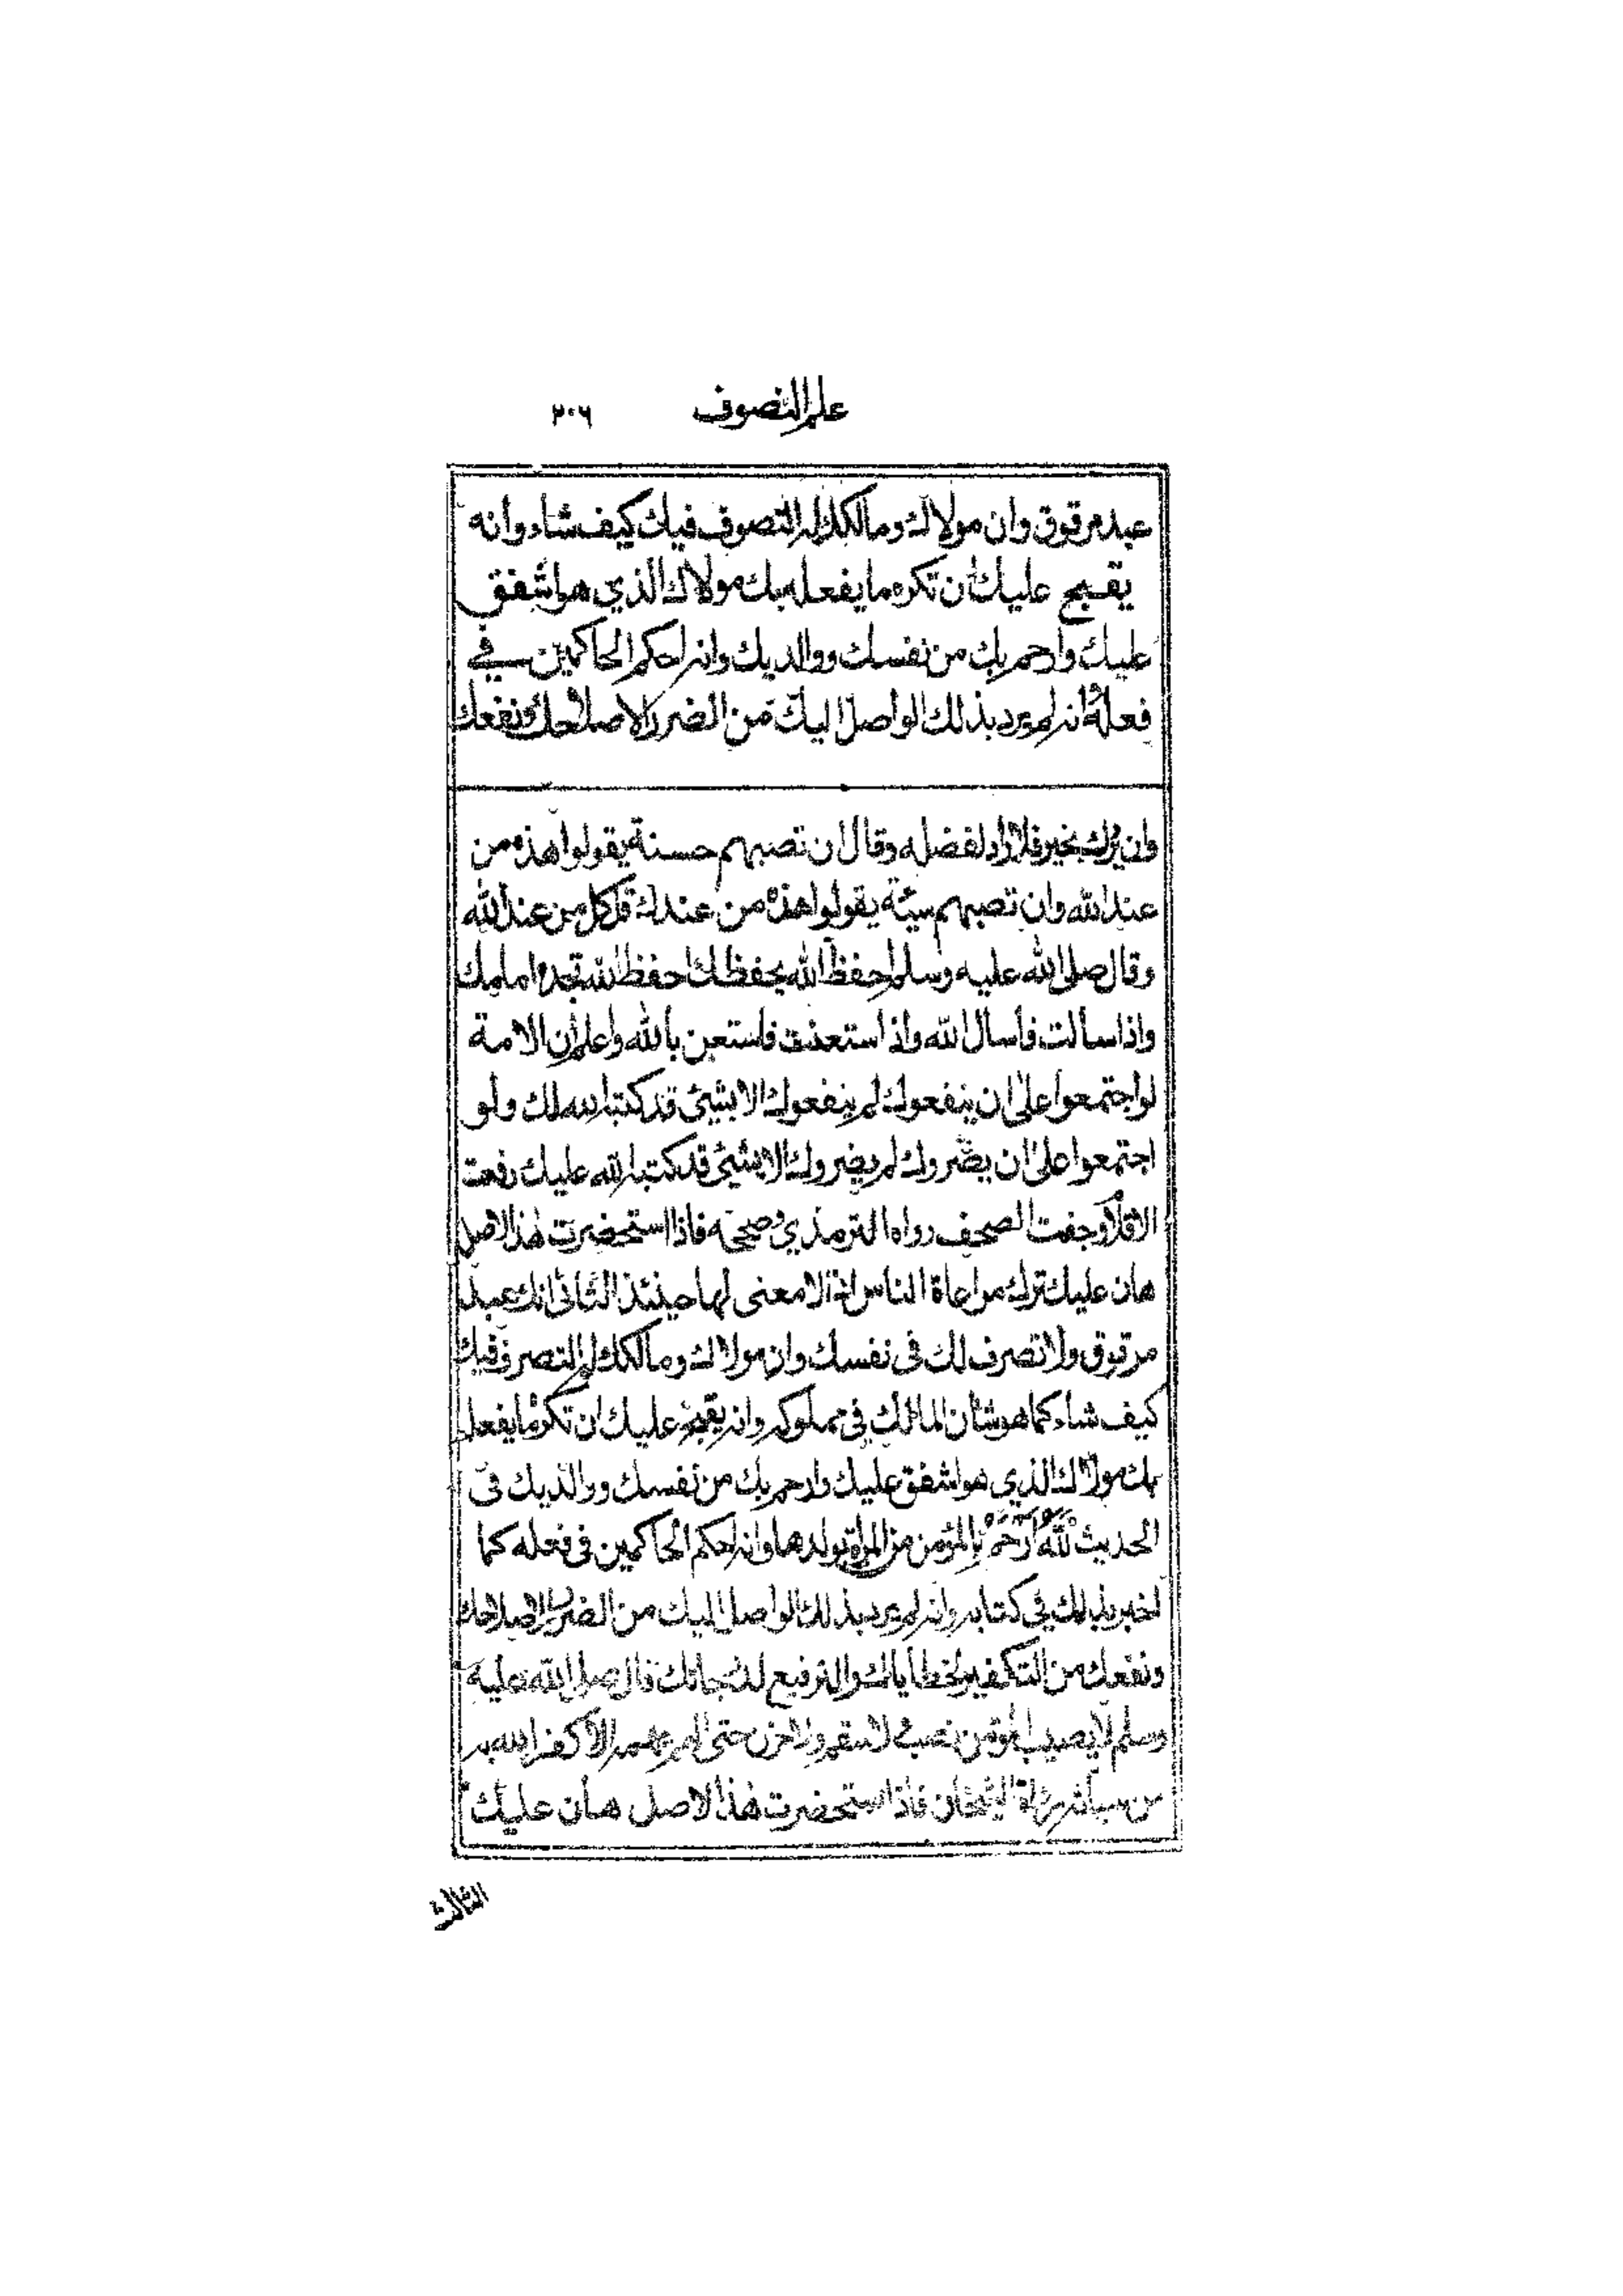 علم التصوف ٢٠٦
عبد مرقوق وان مولاك ومالكك له التصوف فيك كيف شاء وانه
يقبح عليك ان تكره ما يفعله بك مولاك الذي هو اشفق
عليك وارحم بك من نفسك ووالديك وانه احكم الحاكمين في
فعله وانه لم يرد بذلك الواصل اليك من الضرر الا صلاحك ونفعك
وان يردك بخير فلا راد لفضله وقال ان تصبهم حسنة يقولوا هذه من
عند الله وان تصبهم سيئة يقولوا هذه من عندك قل كل من عند الله
وقال صلى الله عليه وسلم احفظ الله يحفظك احفظ الله تجده امامك
واذا سألت فاسأل الله واذا استعنت فاستعن بالله واعلم ان الامة
لو اجتمعوا على ان ينفعوك لم ينفعوك الا بشيئ قد كتبه الله لك ولو
اجتمعوا على ان يضروك لم يضروك الا بشيئ قد كتبه الله عليك رفعت
الاقلام وجفت الصحف رواه الترمذي وصححه فاذا استحضرت هذا الاصل
هان عليك ترك مراعاة الناس اذ لا معنى لها حينئذ الثاني انك عبد
مرقوق ولا تصرف لك فى نفسك وان مولاك ومالكك له التصرف فيك
كيف شاء كما هو شان المالك في مملوكه وانه يقبح عليك ان تكره ما يفعله
بك مولاك الذي هو اشفق عليك وارحم بك من نفسك ووالديك فى
الحديث لله ارحم بالمؤمن من المرأة بولدها وانه احكم الحاكمين فى فعله كما
اخبر بذلك في كتابه وانه لم يرد بذلك الواصل اليك من الضرر الا صلاحك
ونفعك من التكفير لخطاياك والترفيع لدرجاتك قال صلى الله عليه
وسلم لا يصيب المؤمن نصب ولا سقم ولا حزن حتى الهم يهمه الا كفر الله به
من سيأته رواه الشيخان فاذا استحضرت هذا الاصل هان عليك
الثالث